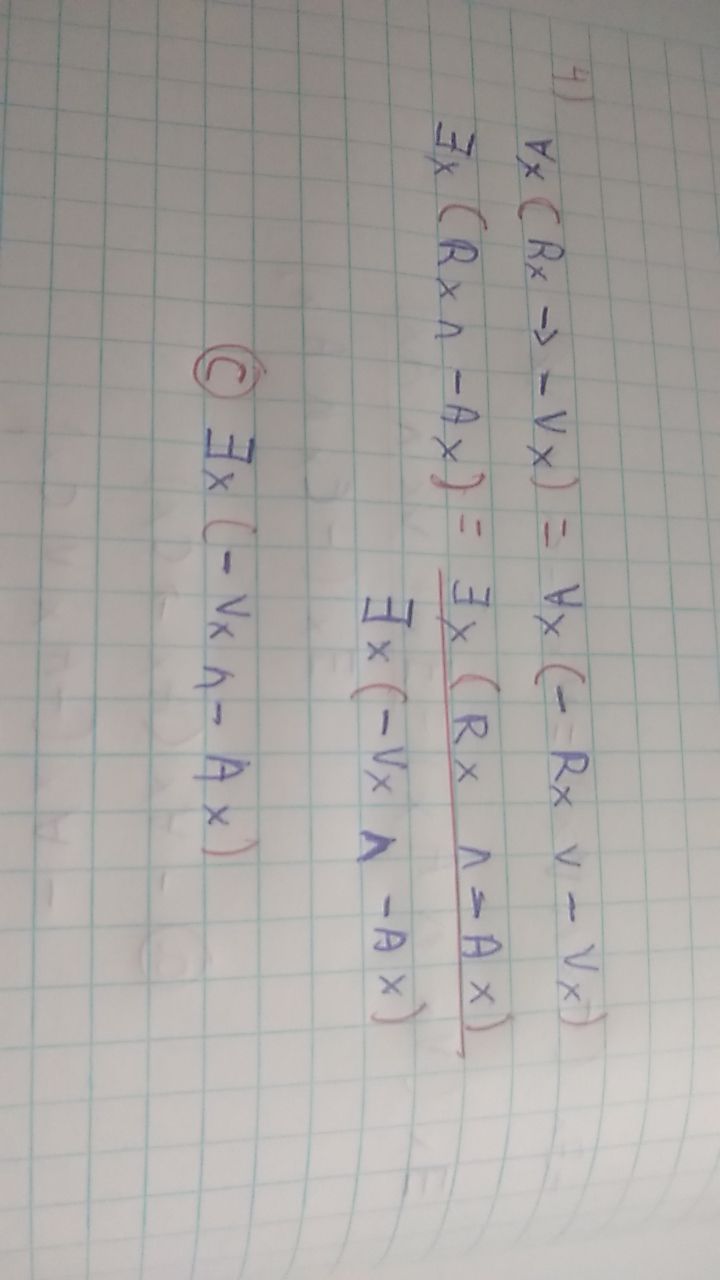 4)
∀x (Rx → - Vx) = ∀x (- Rx ∨ - Vx)
∃x (Rx ∧ - Ax) = ∃x (Rx ∧ - Ax)
∃x (- Vx ∧ - Ax)
C ∃x (- Vx ∧ - Ax)